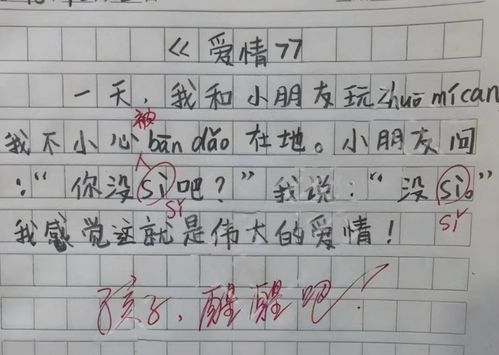 《爱情》
一天，我和小朋友玩zhuō mí can
被
我不小心bān dǎo在地。小朋友问
：“你没sì吧？”我说：“没sì。”
sǐ
sǐ
我感觉这就是伟大的爱情！
孩子，醒醒吧！